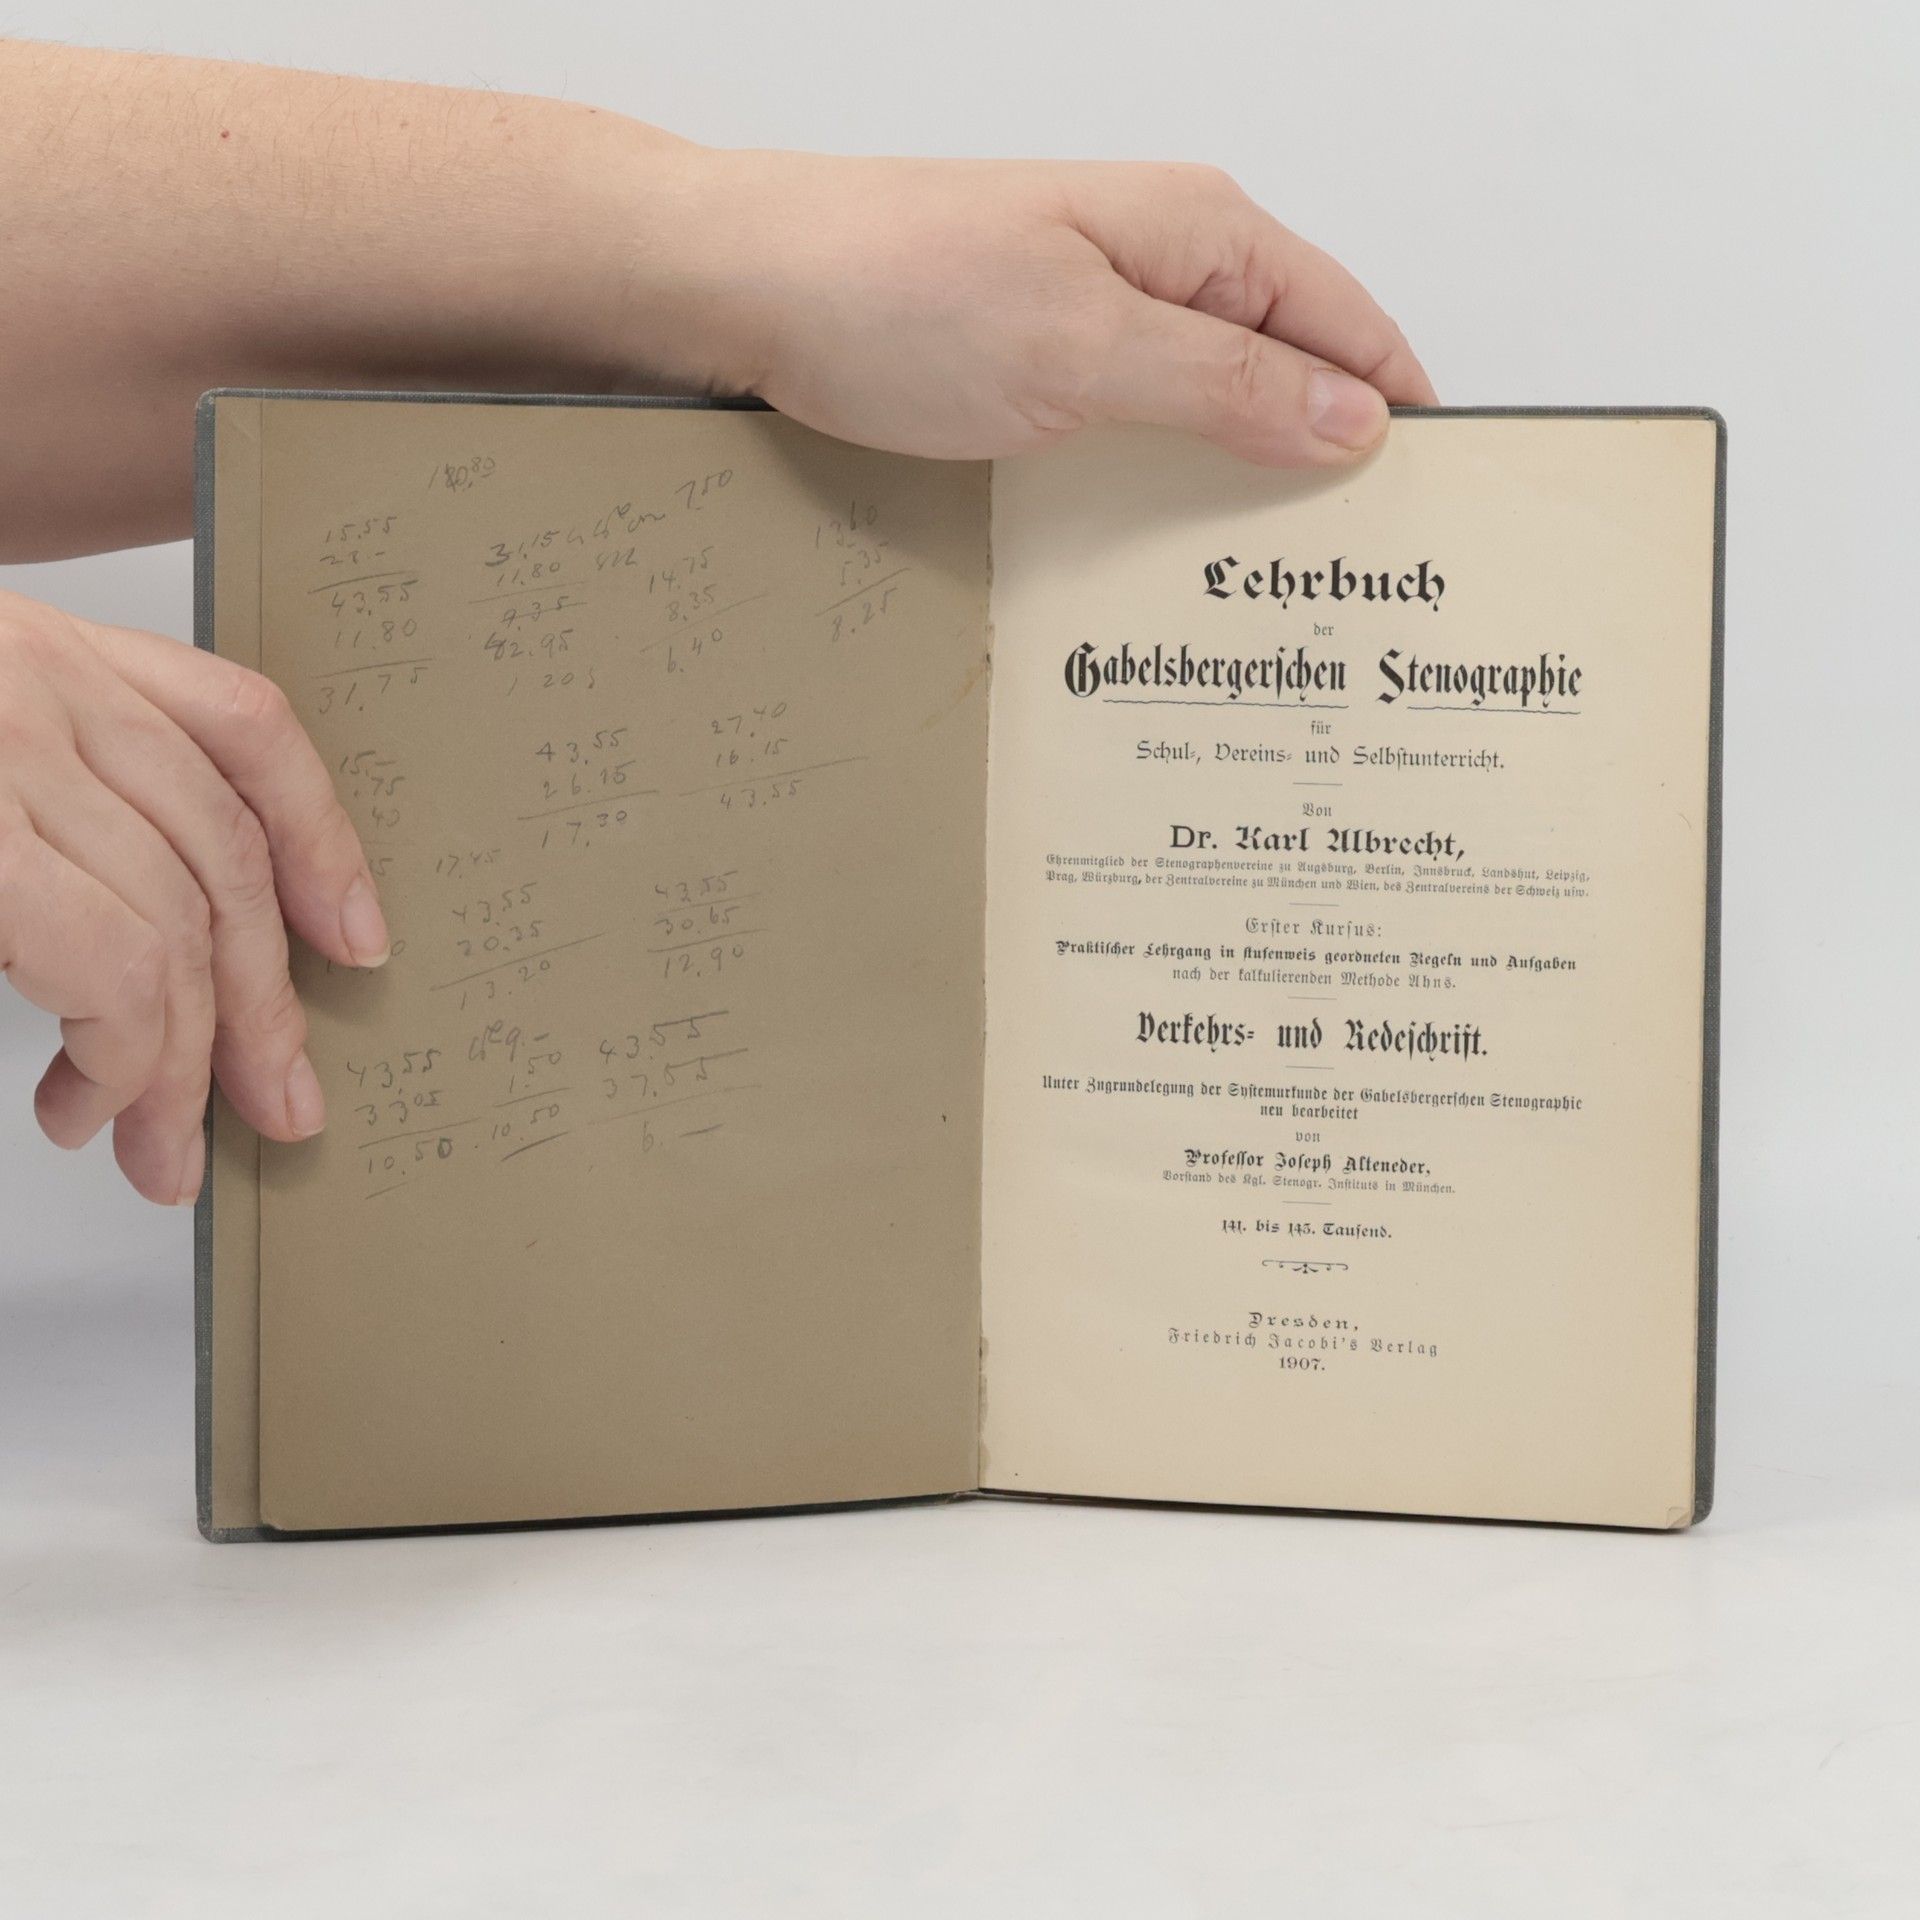 15.55
43.55
11.80
31.75
31.15
11.80
9.35
42.95
1 205
7.50
14.75
8.35
6.40
13.60
5.35
8.25
15.-
.75
40
17.45
43.55
26.25
17.30
27.40
16.15
43.55
43.55
13.20
43.55
30.65
12.90
43.55
33.05
10.50
9.-
1.50
10.50
43.55
37.55
6.-
Lehrbuch
der
Gabelsbergerſchen Stenographie
für
Schul-, Vereins- und Selbſtunterricht.
Von
Dr. Karl Albrecht,
Ehrenmitglied der Stenographenvereine zu Augsburg, Berlin, Innsbruck, Landshut, Leipzig,
Prag, Würzburg, der Zentralvereine zu München und Wien, des Zentralvereins der Schweiz uſw.
Erſter Kurſus:
Praktiſcher Lehrgang in ſtufenweis geordneten Regeln und Aufgaben
nach der kalkulierenden Methode Ahns.
Verkehrs- und Redeſchrift.
Unter Zugrundelegung der Syſtemurkunde der Gabelsbergerſchen Stenographie
neu bearbeitet
von
Profeſſor Joſeph Alteneder,
Vorſtand des Kgl. Stenogr. Inſtituts in München.
141. bis 145. Tauſend.
Dresden,
Friedrich Jacobi's Verlag
1907.